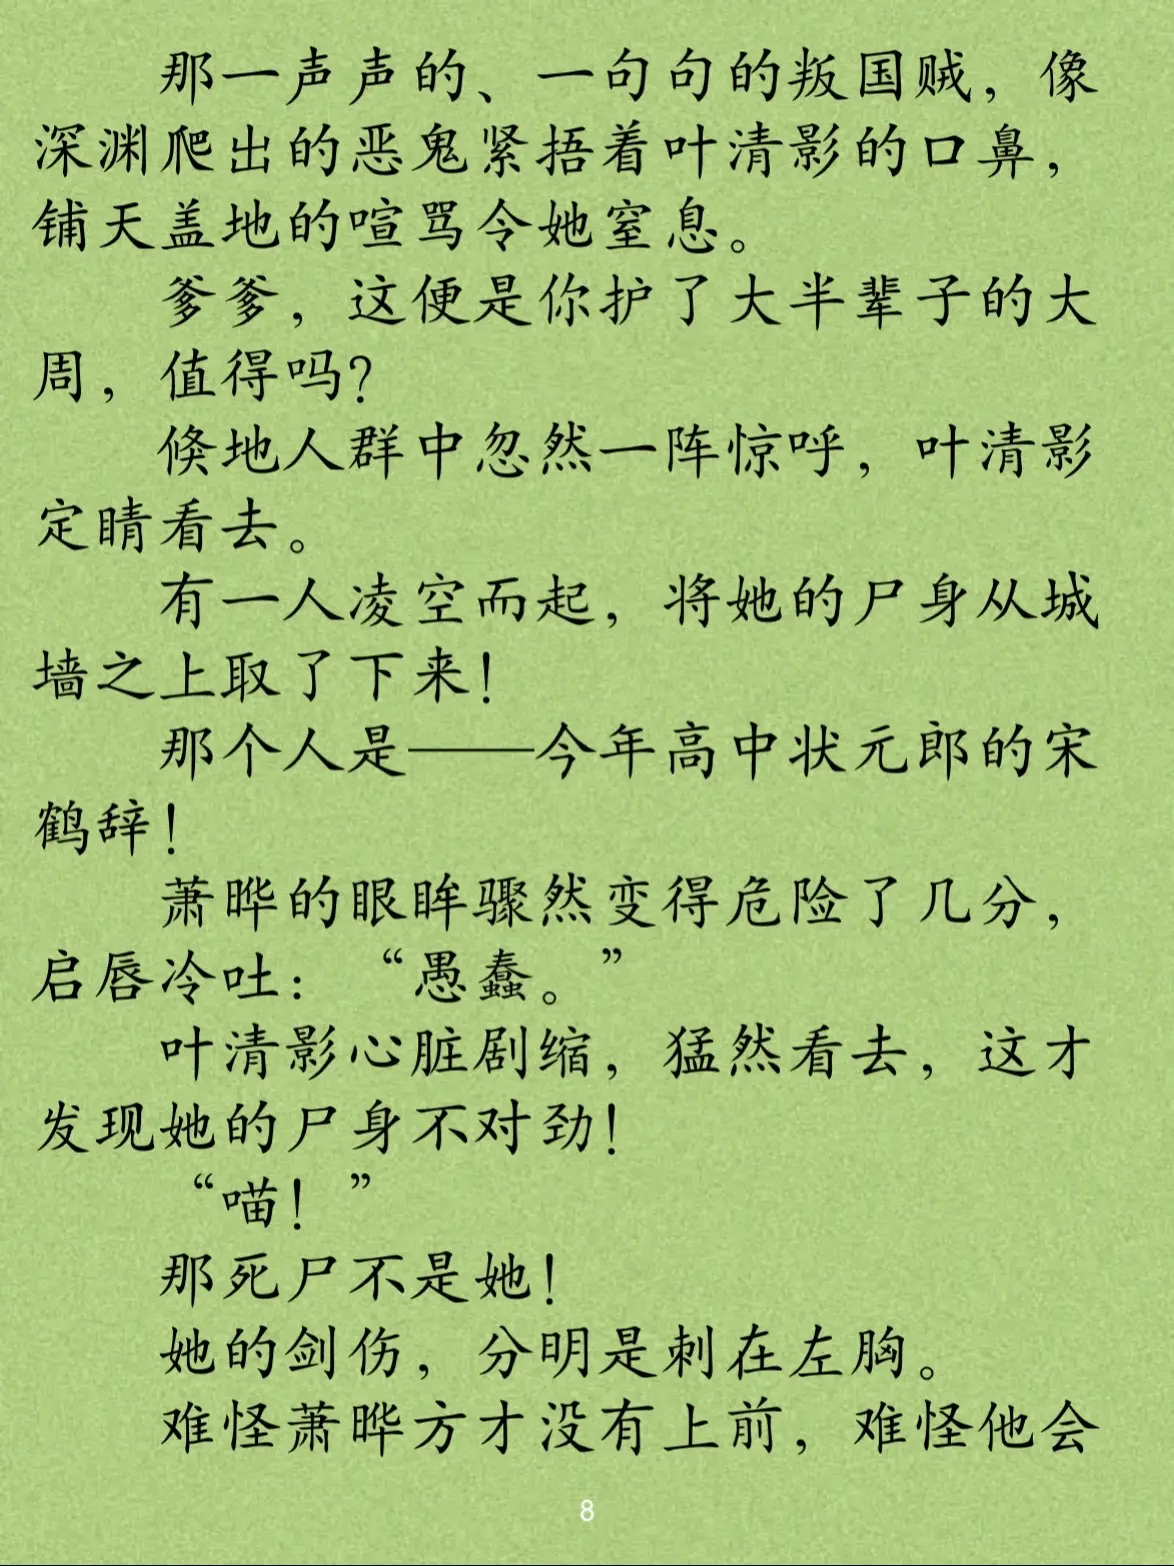 那一声声的、一句句的叛国贼，像
深渊爬出的恶鬼紧捂着叶清影的口鼻，
铺天盖地的喧骂令她窒息。
爹爹，这便是你护了大半辈子的大
周，值得吗？
倏地人群中忽然一阵惊呼，叶清影
定睛看去。
有一人凌空而起，将她的尸身从城
墙之上取了下来！
那个人是——今年高中状元郎的宋
鹤辞！
萧晔的眼眸骤然变得危险了几分，
启唇冷吐：“愚蠢。”
叶清影心脏剧缩，猛然看去，这才
发现她的尸身不对劲！
“喵！”
那死尸不是她！
她的剑伤，分明是刺在左胸。
难怪萧晔方才没有上前，难怪他会
8